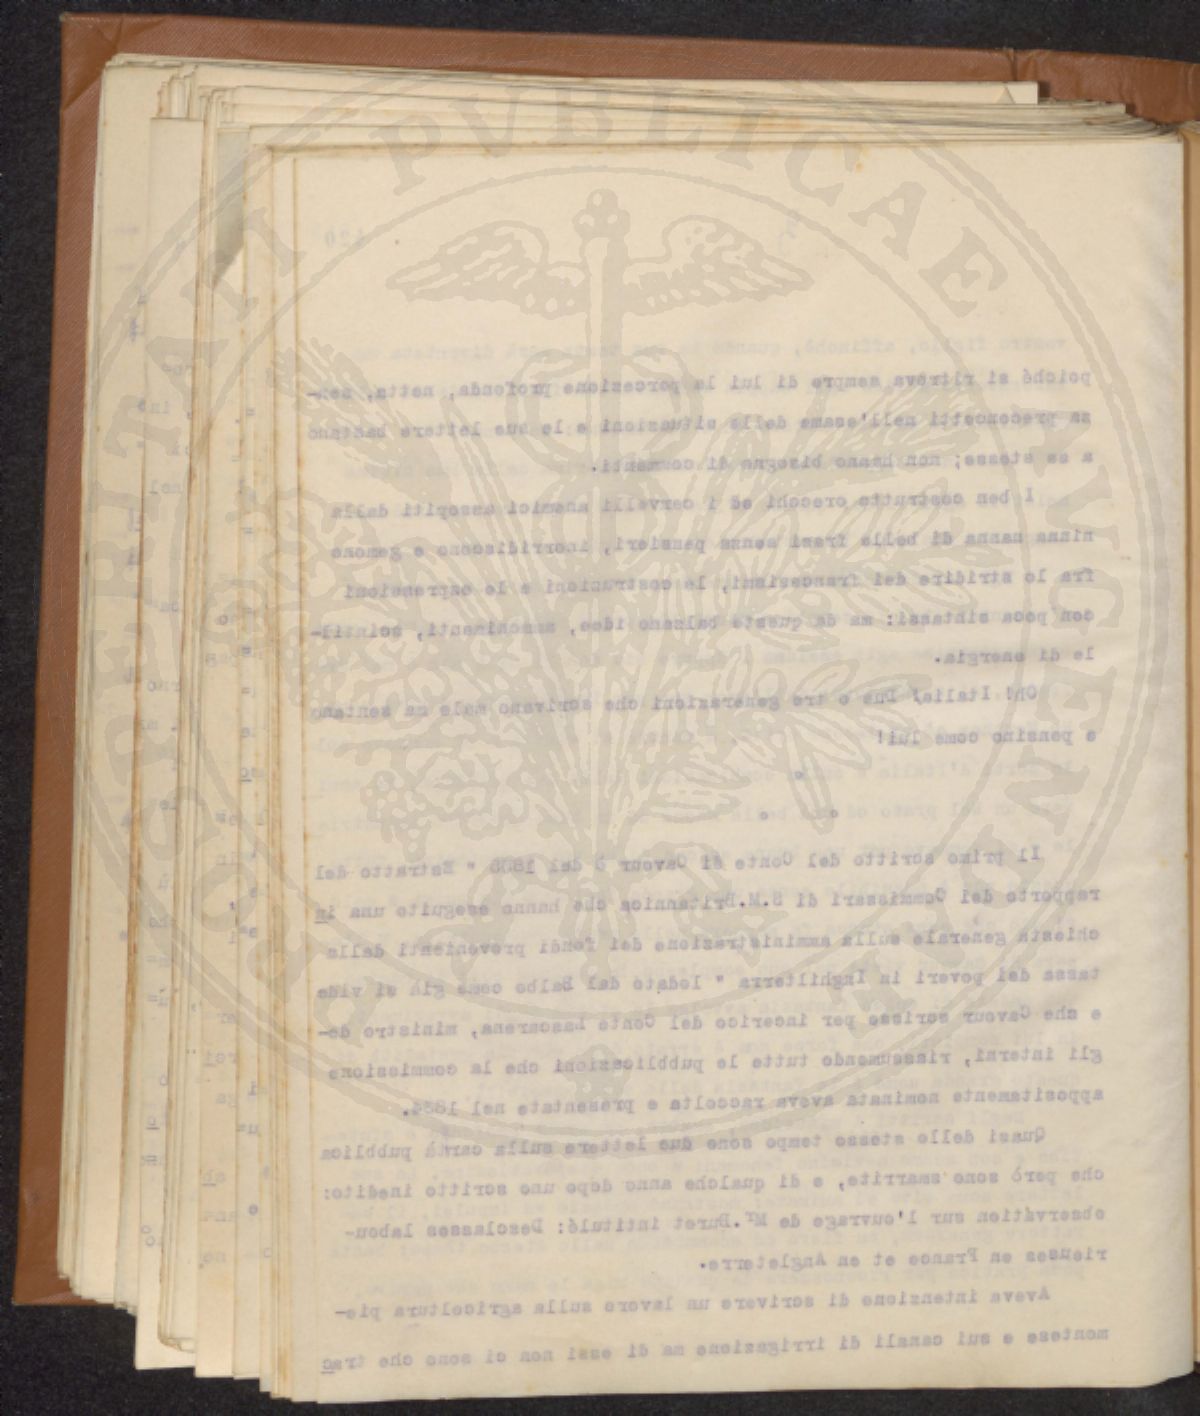 PROSPERITATI PVBLICAE AVGENDAE
poiché si ritrova sempre di lui la percezione profonda, netta, sen-
za preconcetti nell'esame della situazioni e le sue lettere bastano
a se stesse; non hanno bisogno di commenti.
I ben costrutto orecchi ed i cervelli anemici assopiti dalla
ninna nanna di belle frasi senza pensieri, inorridiscono e gemono
fra lo stridire dei francesismi, le costruzioni e le expressioni
con poca sintassi: ma da queste balzano idee, ammonimenti, scintil-
le di energia.
Oh! Italia! Due o tre generazioni che scrivano male ma sentano
e pensino come lui!
Il primo scritto del Conte di Cavour è del 1835 " Estratto del
rapporto dei Commissari di S.M.Britannica che hanno eseguito una in
chiesta generale sulla amministrazione dei fondi provenienti dalla
tassa dei poveri in Inghilterra " lodato dal Balbo come già si vide
e che Cavour scrisse per incarico del Conte Lascarena, ministro de-
gli interni, riassumendo tutte le pubblicazioni che la commissione
appositamente nominata aveva raccolta e presentate nel 1834.
Quasi dello stesso tempo sono due lettere sulla carità pubblica
che però sono smarrite, e di qualche anno dopo uno scritto inedito:
observation sur l'ouvrage de Mr.Buret intitulé: Desclasses labou-
rieuses en France et en Angleterre.
Aveva intenzione di scrivere un lavoro sulla agricoltura pie-
montese e sui canali di irrigazione ma di essi non ci sono che trac